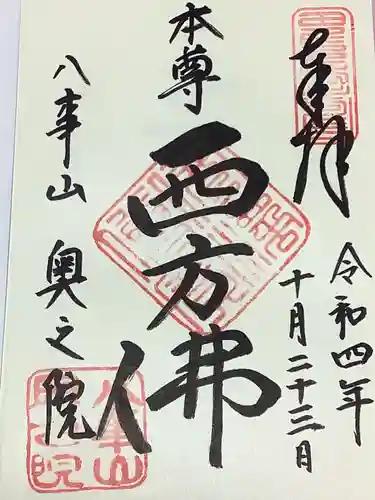 奉拝
令和四年
十月二十三日
本尊
西方佛
八事山 奥之院
八事山
奥之院